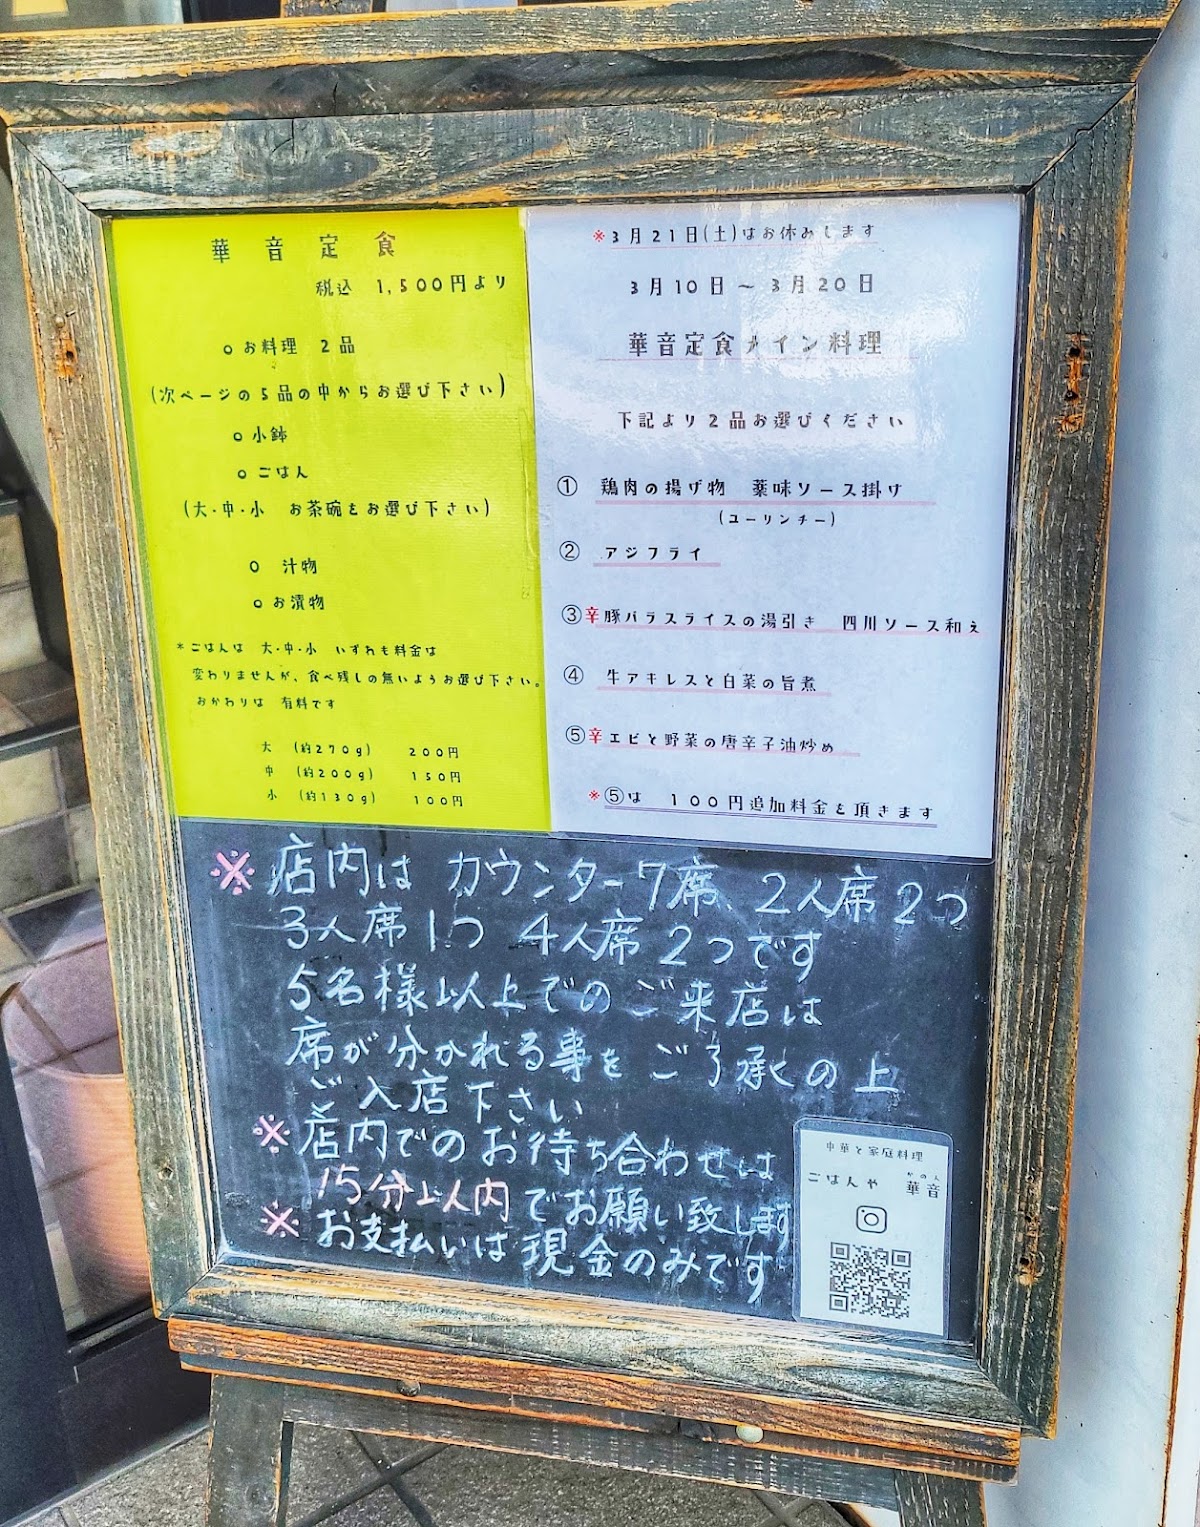 華音定食
税込 1,500円より
○お料理 2品
(次ページの5品の中からお選び下さい)
○小鉢
○ごはん
(大・中・小 お茶碗をお選び下さい)
○ 汁物
○お漬物
*ごはんは 大・中・小 いずれも料金は
変わりませんが、食べ残しの無いようお選び下さい。
おかわりは 有料です
大 (約270g) 200円
中 (約200g) 150円
小 (約130g) 100円
※3月21日(土)はお休みします
3月10日～3月20日
華音定食メイン料理
下記より2品お選びください
① 鶏肉の揚げ物 薬味ソース掛け
(ユーリンチー)
② アジフライ
③辛豚バラスライスの湯引き 四川ソース和え
④ 牛アキレスと白菜の旨煮
⑤辛エビと野菜の唐辛子油炒め
※⑤は 100円追加料金を頂きます
※店内は カウンター7席、2人席2つ
3人席1つ 4人席2つです
5名様以上でのご来店は
席が分かれる事をご了承の上
ご入店下さい
※店内でのお待ち合わせは
15分以内でお願い致します
※お支払いは現金のみです
中華と家庭料理
かのん
ごはんや 華音